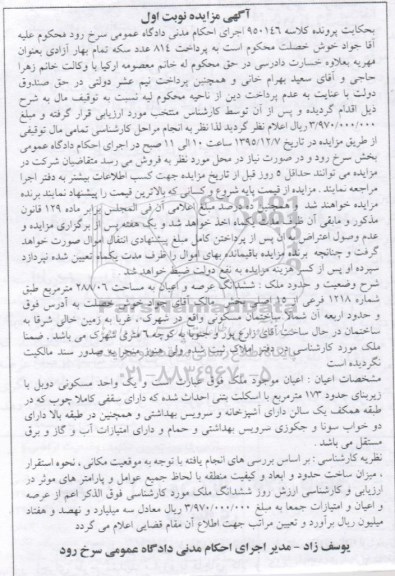 آگهی مزایده نوبت اول
بحکایت پرونده کلاسه ۹۵۰۱۴۶ اجرای احکام مدنی دادگاه عمومی سرخ رود محکوم علیه
آقا جواد خوش خصلت محکوم است به پرداخت ۸۱۴ عدد سکه تمام بهار آزادی بعنوان
مهریه بعلاوه خسارت دادرسی در حق محکوم له خانم معصومه ارکیا با وکالت خانم زهرا
حاجی و آقای سعید بهرام خانی و همچنین پرداخت نیم عشر دولتی در حق صندوق
دولت با عنایت به عدم پرداخت دین از ناحیه محکوم لیه نسبت به توقیف مال به شرح
ذیل اقدام گردیده و پس از آن توسط کارشناس منتخب مورد ارزیابی قرار گرفته و مبلغ
۳/۹۷۰/۰۰۰/۰۰۰ ریال اعلام نظر گردید لذا نظر به انجام مراحل کارشناسی تمامی مال توقیفی
از طریق مزایده در تاریخ ۱۳۹۵/۱۲/۷ ساعت ۱۰ الی ۱۱ صبح در اجرای احکام دادگاه عمومی
بخش سرخ رود و در صورت نیاز در محل مورد نظر به فروش می رسد متقاضیان شرکت در
مزایده می توانند حداقل ۵ روز قبل از تاریخ مزایده جهت کسب اطلاعات بیشتر به دفتر اجرا
مراجعه نمایند . مزایده از قیمت پایه شروع و کسانی که بالاترین قیمت را پیشنهاد نمایند برنده
مزایده خواهند شد . درصد مبلغ اعلامی آن فی المجلس برابر ماده ۱۲۹ قانون
مذکور و مابقی آن یکماه اخذ خواهد شد و یک هفته پس از برگزاری مزایده و
عدم وصول اعتراض پس از پرداختن کامل مبلغ پیشنهادی انتقال اموال صورت خواهد
گرفت و چنانچه برنده مزایده باقیمانده بهای اموال را ظرف مدت یکماه تعیین شده نپردازد
سپرده او پس از کسر هزینه مزایده به نفع دولت ضبط خواهد شد .
شرح وضعیت و حدود ملک : ششدانگ عرصه و اعیان به مساحت ۲۸۸۰۶ مترمربع طبق
شماره ۱۲۱۸ فرعی از ۱۵ اصلی بخش مالک آقای جواد خوش خصلت به آدرس فوق
و حدود اربعه آن شمالا ساختمان مسکونی واقع در شهرک ، غربا به زمین خالی شرقا به
ساختمان در حال ساخت آقای زارع پور و جنوبا به کوچه ۶ متری شهرک می باشد . ضمنا
ملک مورد کارشناسی در دفتر املاک ثبت شده ولی هنوز منجر به صدور سند مالکیت
نگردیده است
مشخصات اعیان : اعیان موجود ملک فوق عبارت است و یک واحد مسکونی دوبل با
زیربنای حدود ۱۷۳ مترمربع با اسکلت بتنی احداث شده که دارای سقفی کاملا چوب که در
طبقه همکف یک سالن دارای آشپزخانه و سرویس بهداشتی و همچنین در طبقه بالا دارای
دو خواب سونا و جکوزی سرویس بهداشتی و حمام و دارای امتیازات آب و گاز و برق
مستقل می باشد .
نظریه کارشناسی : بر اساس بررسی های انجام یافته با توجه به موقعیت مکانی ، نحوه استقرار
، میزان ساخت حدود و ابعاد و کیفیت منطقه با لحاظ جمیع عوامل و پارامتر های موثر در
ارزیابی و کارشناسی ارزش روز ششدانگ ملک مورد کارشناسی فوق الذکر اعم از عرصه
و اعیان و امتیازات جمعا به مبلغ ۳/۹۷۰/۰۰۰/۰۰۰ ریال معادل سه میلیارد و نهصد و هفتاد
میلیون ریال برآورد و تعیین مراتب جهت اطلاع آن مقام قضایی اعلام می گردد
یوسف زاد - مدیر اجرای احکام مدنی دادگاه عمومی سرخ رود
ParsNamad
۰۲۱-۸۸۳۴۹۶۷۰-۵